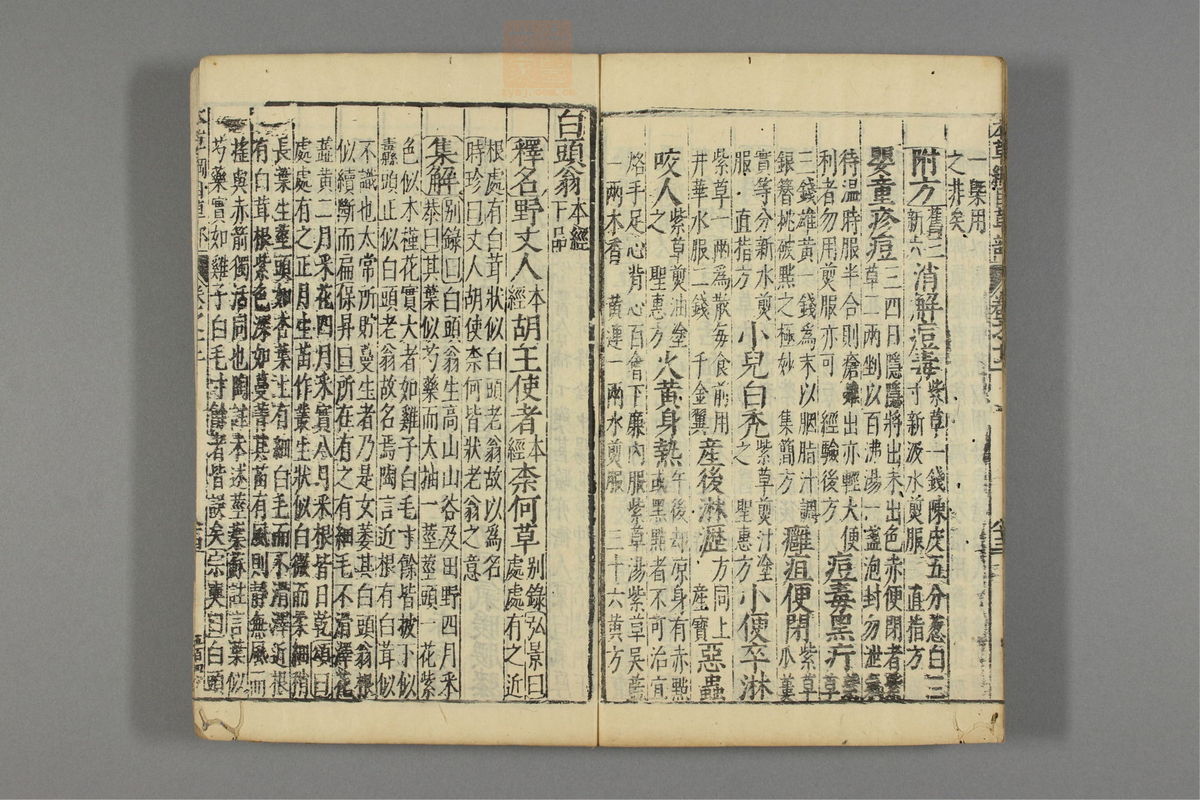 一槩用
之非矣
附方舊三新六消解痘毒紫草一錢陳皮五分葱白三寸新汲水煎服 直指方
嬰童疹痘三四日隱隱將出未出色赤便閉者紫草二兩剉以百沸湯一盞泡封勿泄氣
待温時服半合則瘡雖出亦輕大便利者勿用煎服亦可 經驗後方 痘毒黑疔紫草
三錢雄黃一錢爲末以胭脂汁調銀簪挑破點之極妙 集簡方 癰疽便閉紫草瓜蔞
實等分新水煎服 直指方 小兒白禿紫草煎汁塗之 聖惠方 小便卒淋
紫草一兩爲散每食前用井華水服二錢 千金翼 產後淋瀝方同上 產寶 惡蟲
咬人紫草煎油塗之 聖惠方 火黃身熱午後却凉身有赤點或黑點者不可治宜
烙手足心背心百會下廉內服紫草湯紫草吳藍一兩木香 黃連一兩水煎服 三十六黃方
白頭翁本經下品
釋名野丈人本經胡王使者本經柰何草别錄弘景曰處處有之近
根處有白茸狀似白頭老翁故以爲名
時珍曰丈人胡使柰何皆狀老翁之意
集解别錄曰白頭翁生高山山谷及田野四月采恭曰其葉似芍藥而大抽一莖莖頭一花紫
色似木槿花實大者如雞子白毛寸餘皆被下似纛頭正似白頭老翁故名焉陶言近根有白茸似
不識也太常所貯蔓生者乃是女萎其白頭翁根似續斷而扁保昇曰所在有之有細毛不滑澤花
蘂黃二月采花四月采實八月采根皆日乾頌曰處處有之正月生苗作叢生狀似白薇而柔細稍
長葉生莖頭如杏葉上有細白毛而不滑澤近根有白茸根紫色深如蔓菁其苗有風則靜無風而
搖與赤箭獨活同也陶註未述莖葉蘇註言葉似芍藥實如雞子白毛寸餘者皆誤矣宗奭曰白頭